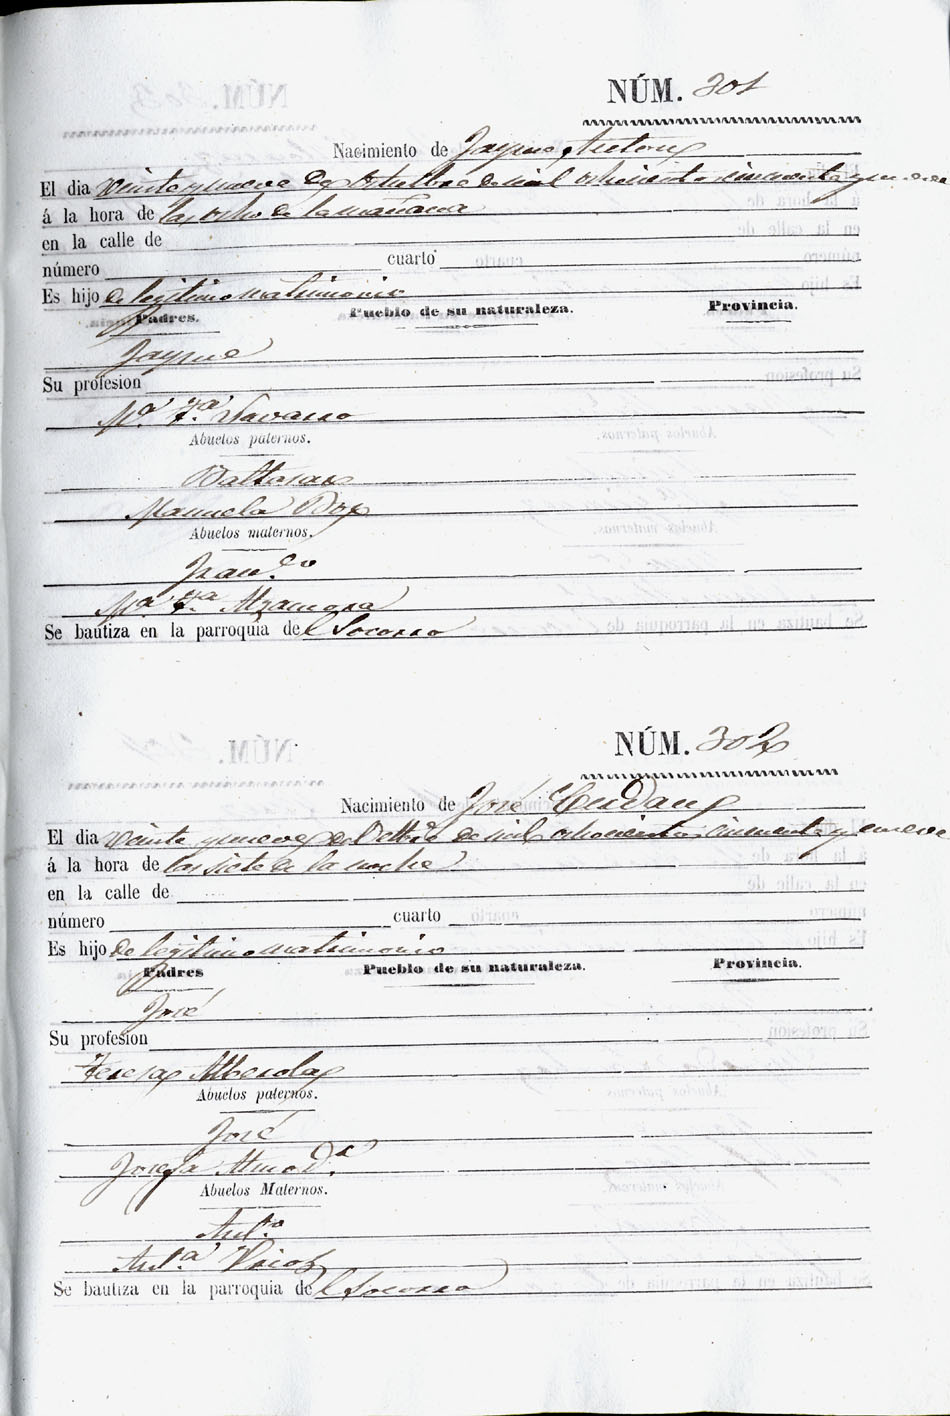 NÚM. 301
Nacimiento de Jayme Antony
El dia veinte y nueve de Octubre de mil ochocientos cincuenta y nueve
á la hora de las ocho de la mañana
en la calle de
número cuarto
Es hijo de legitimo matrimonio
Padres. Pueblo de su naturaleza. Provincia.
Jayme
Su profesion
Mª Tª Navarro
Abuelos paternos.
Baltasar
Manuela Boy
Abuelos maternos.
Fran.co
Mª Tª Alzamora
Se bautiza en la parroquia del Socorro
NÚM. 302
Nacimiento de José
El dia veinte y nueve de Octbre de mil ochocientos cincuenta y nueve
á la hora de las siete de la noche
en la calle de
número cuarto
Es hijo de legitimo matrimonio
Padres Pueblo de su naturaleza. Provincia.
José
Su profesion
Teresa Alberola
Abuelos paternos.
José
Josefa
Abuelos Maternos.
Ant.o
Ant.a
Se bautiza en la parroquia del Socorro